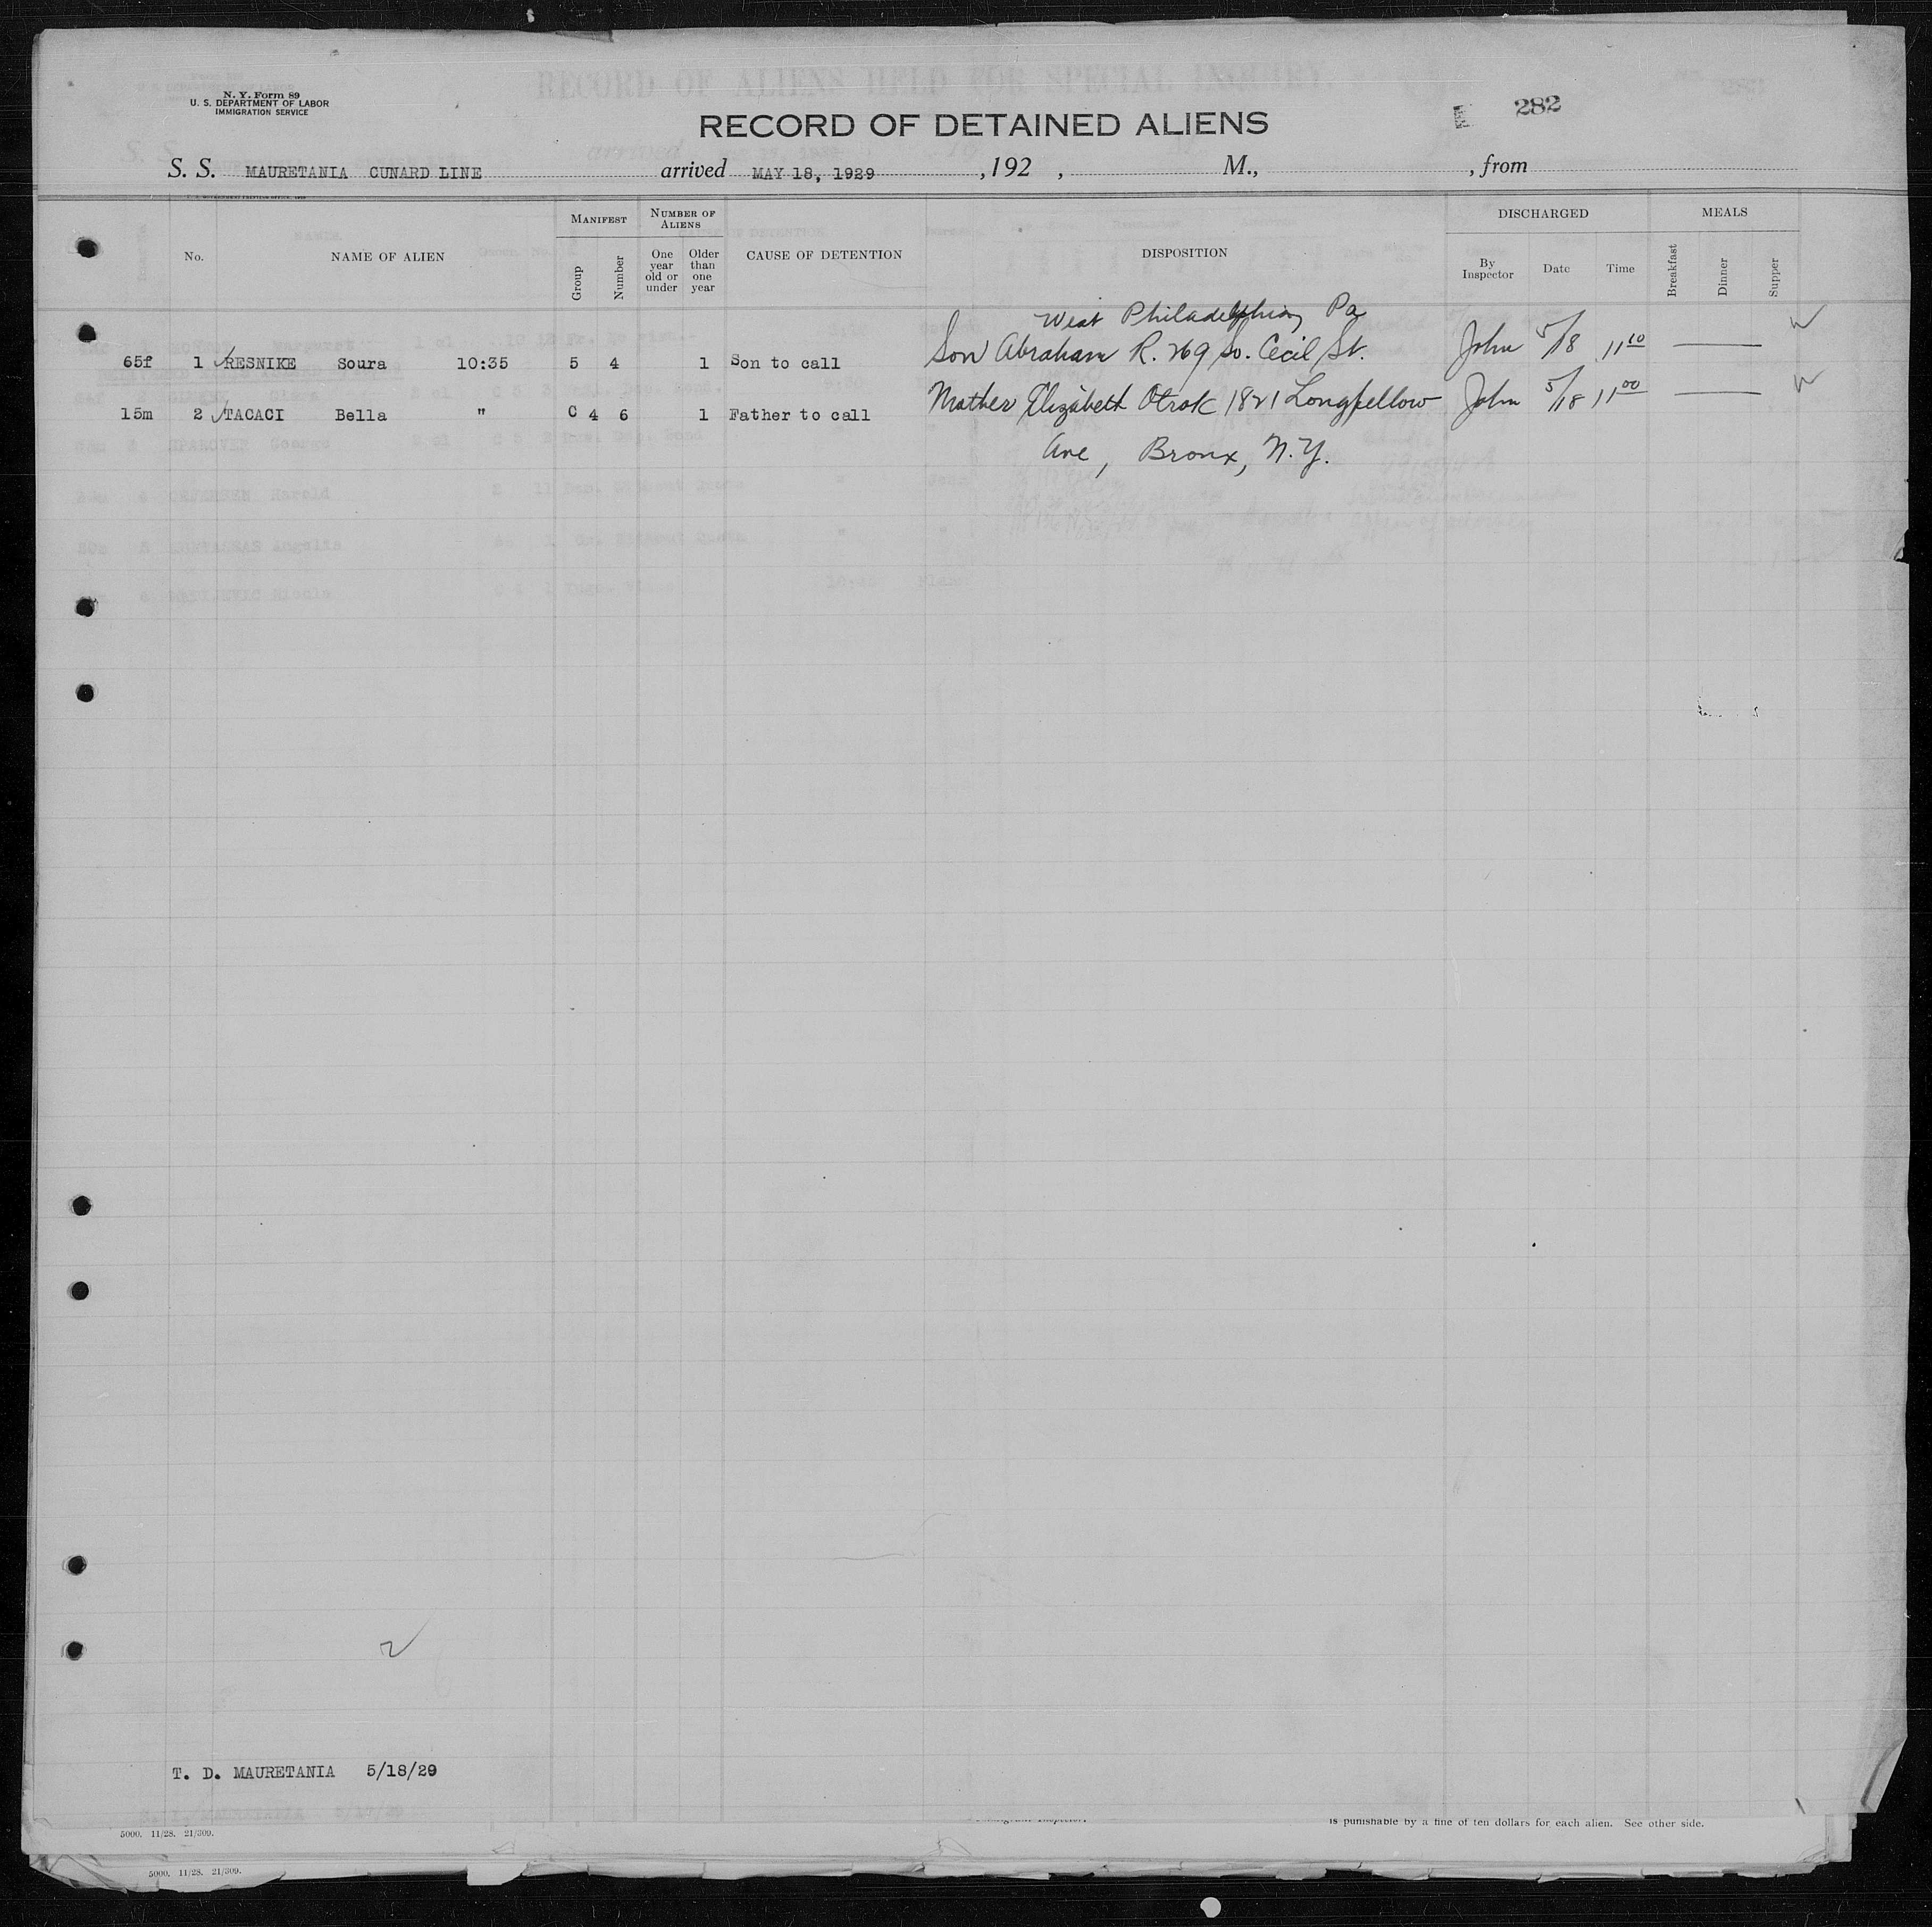 N. Y. Form 89
U. S. DEPARTMENT OF LABOR
IMMIGRATION SERVICE
RECORD OF ALIENS HELD FOR SPECIAL INQUIRY
RECORD OF DETAINED ALIENS
282
S. S. MAURETANIA CUNARD LINE arrived MAY 18, 1929 ,192 , M., , from
No. NAME OF ALIEN MANIFEST Group Number NUMBER OF ALIENS One year old or under Older than one year CAUSE OF DETENTION DISPOSITION DISCHARGED By Inspector Date Time MEALS Breakfast Dinner Supper
West Philadelphia, Pa
65f 1 RESNIKE Soura 10:35 5 4 1 Son to call Son Abraham R. 269 So. Cecil St. John 5/18 11 10
15m 2 TACACI Bella " C 4 6 1 Father to call Mother Elizabeth Otrok 1821 Longfellow John 5/18 11 00
Ave, Bronx, N.Y.
2
T. D. MAURETANIA 5/18/29
is punishable by a fine of ten dollars for each alien. See other side.
5000. 11/28. 21/309.
5000. 11/28. 21/309.